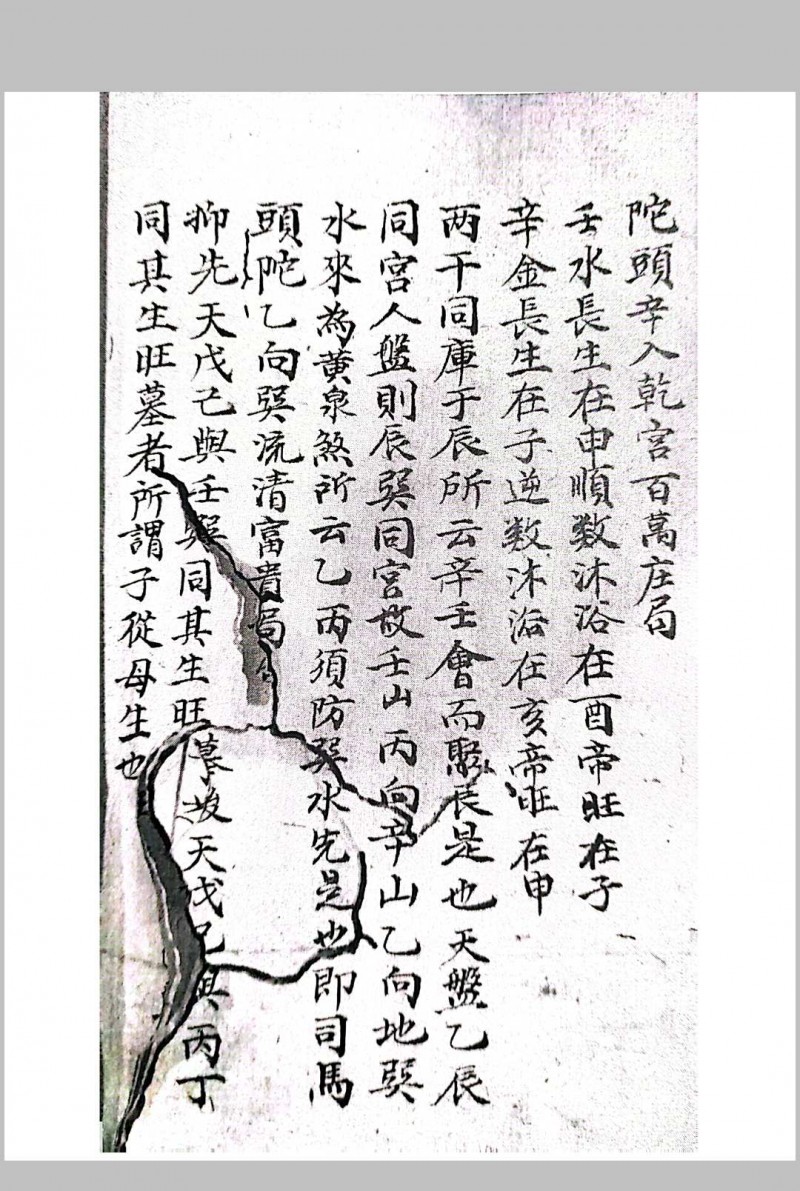 陀頭辛入乾宮百萬庄局
壬水長生在申順数沐浴在酉帝旺在子
辛金長生在子逆数沐浴在亥帝旺在申
两干同庫于辰所云辛壬會而聚辰是也天盤乙辰
同宮人盤則辰巽同宮故壬山丙向辛山乙向地巽
水來為黄泉煞所云乙丙須防巽水先是也即司馬
頭陀乙向巽流清富貴局
抑先天戊己與壬 同其生旺墓 天戊己與丙丁
同其生旺墓者所謂子從母生也